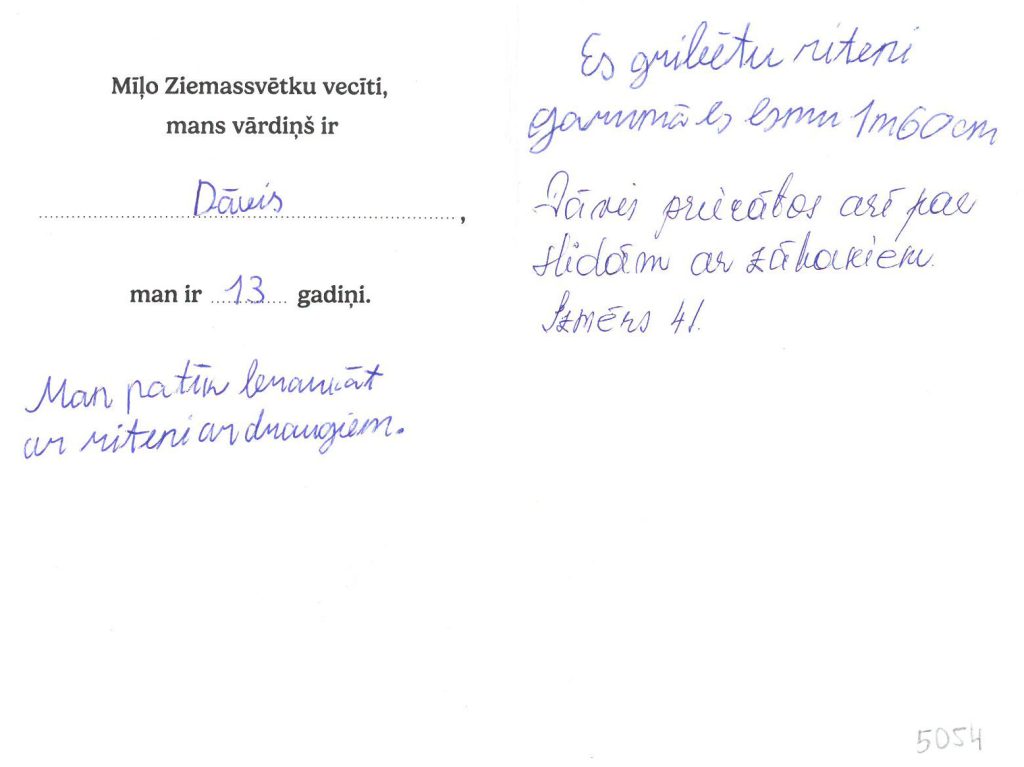 Mīļo Ziemassvētku vecīti,
mans vārdiņš ir
Dāvis,
man ir 13 gadiņi.
Man patīk braukāt
ar riteni ar draugiem.
Es gribētu riteni
garumā es esmu 1m60cm
Dāvis priecātos arī par
slidām ar zābakiem.
Izmērs 41.
5054